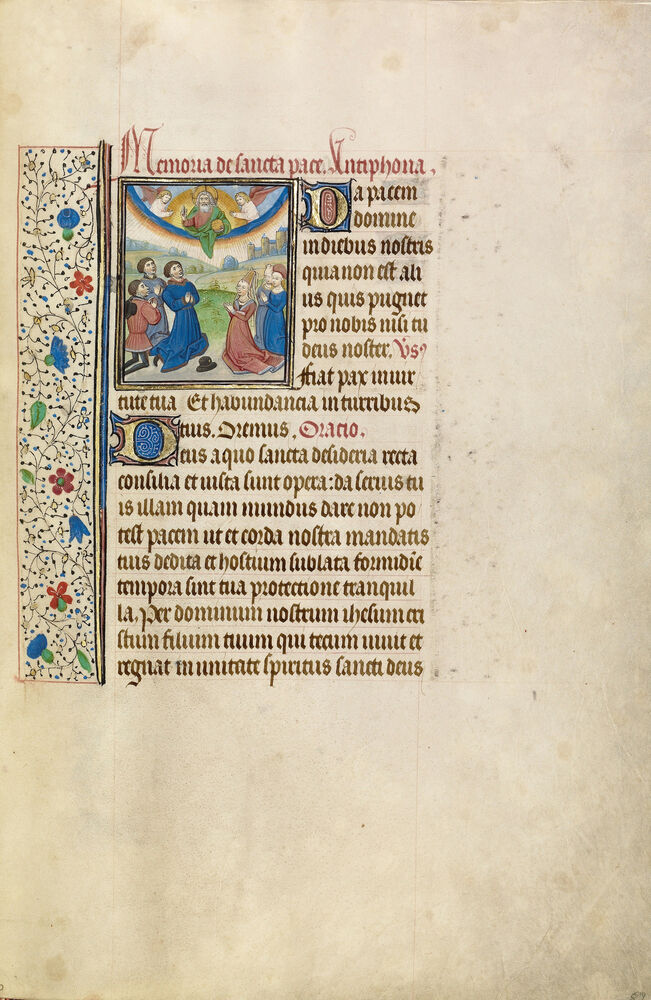 Memoria de sancta pace. Antiphona.
Da pacem
domine
in diebus nostris
quia non est ali
us quis pugnet
pro nobis nisi tu
deus noster. Vs
Fiat pax in uir
tute tua Et habundancia in turribus
tuis. Oremus. Oracio.
Deus a quo sancta desideria recta
consilia et iusta sunt opera: da seruis tu
is illam quam mundus dare non po
test pacem ut et corda nostra mandatis
tuis dedita et hostium sublata formidīe
tempora sint tua protectione tranquil
la. Per dominum nostrum ihesum cri
stum filium tuum qui tecum uiuit et
regnat in unitate spiritus sancti deus